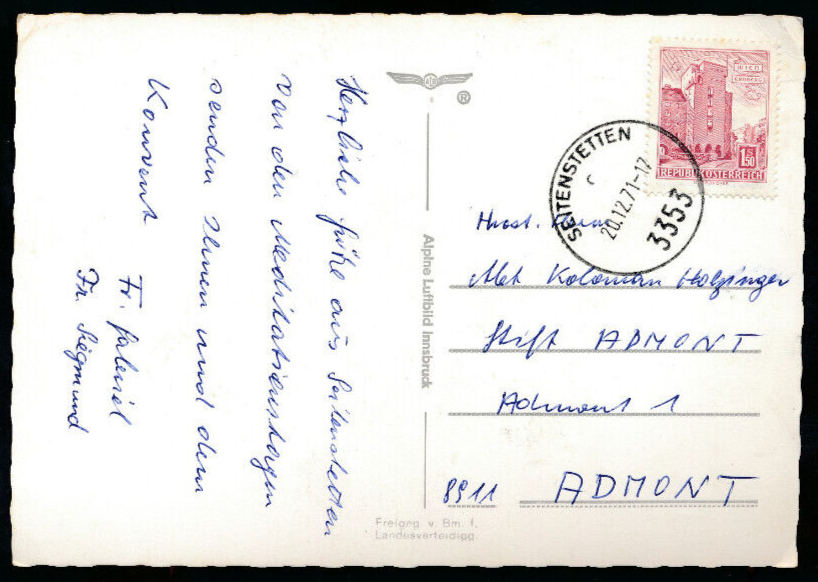 Herzliche Grüße aus Seitenstetten
von den Meditationstagen
senden Ihnen und dem
Konvent
Fr. Gabriel
Fr. Siegmund
®
Alpine Luftbild Innsbruck
Freigeg. v. Bm. f.
Landesverteidigg.
WIEN
ERDBERG
1.50
REPUBLIK ÖSTERREICH
SEITENSTETTEN
20.12.71-17
c
3353
Hwst. Herrn
Abt Koloman Holzinger
Stift ADMONT
Admont 1
8911 ADMONT